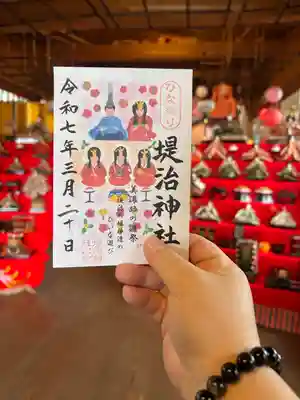 ひなまつり
堤治神社
美濃路の雛祭
令和七年三月二十日